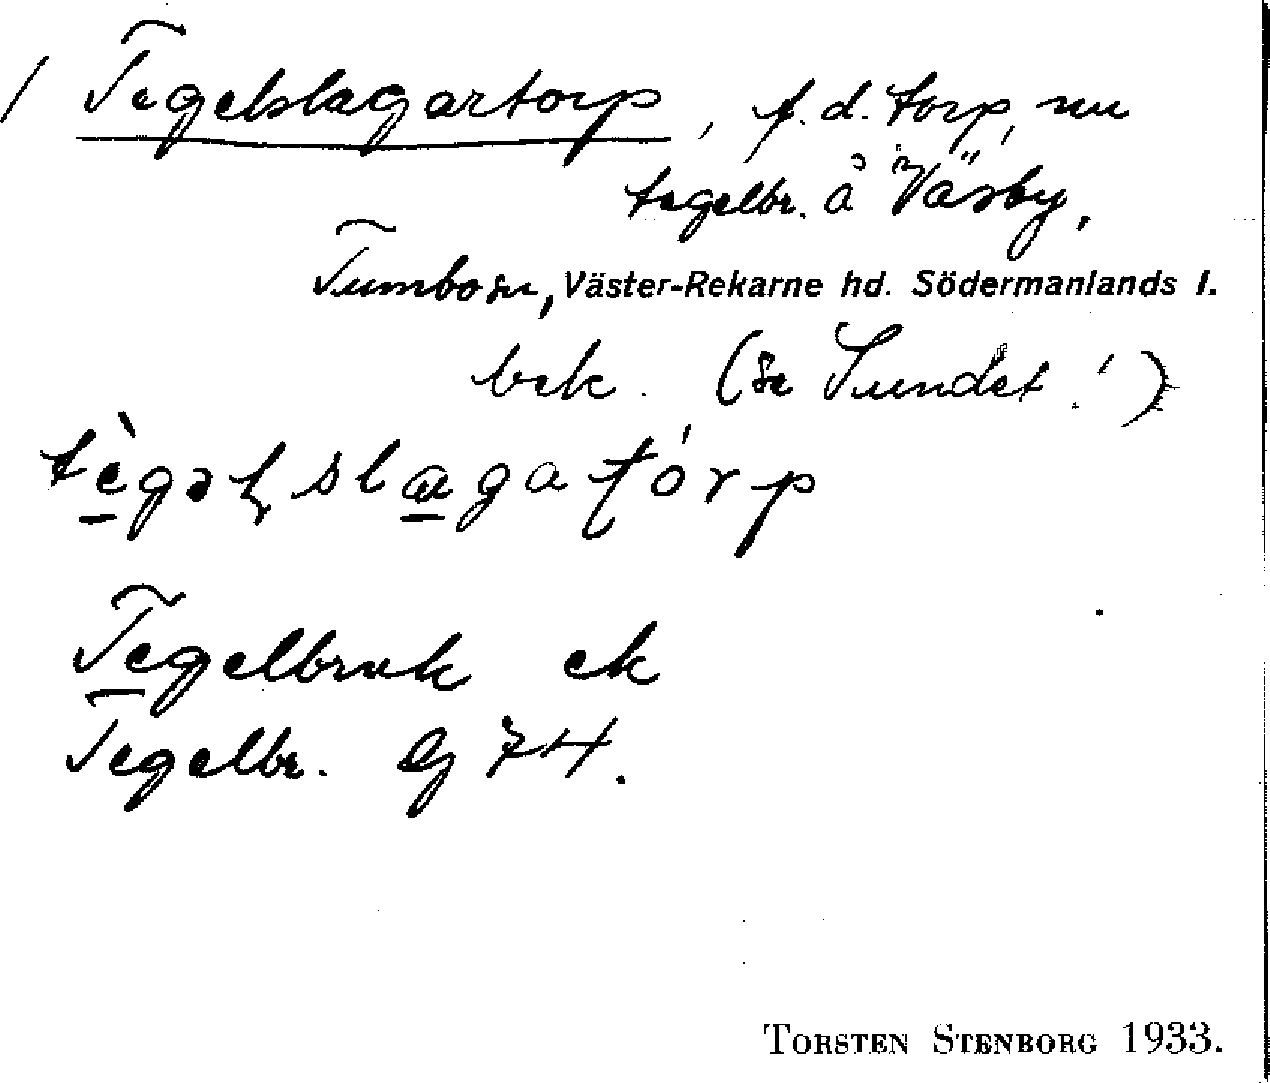 / Tegelslagartorp, f.d. torp, nu
tegelbr. å Väsby,
Tumbo sn, Väster-Rekarne hd. Södermanlands l.
bek. (se Sundet!)
Tegelbruk ek
Tegelbr. Gj 74.
TORSTEN STENBORG 1933.